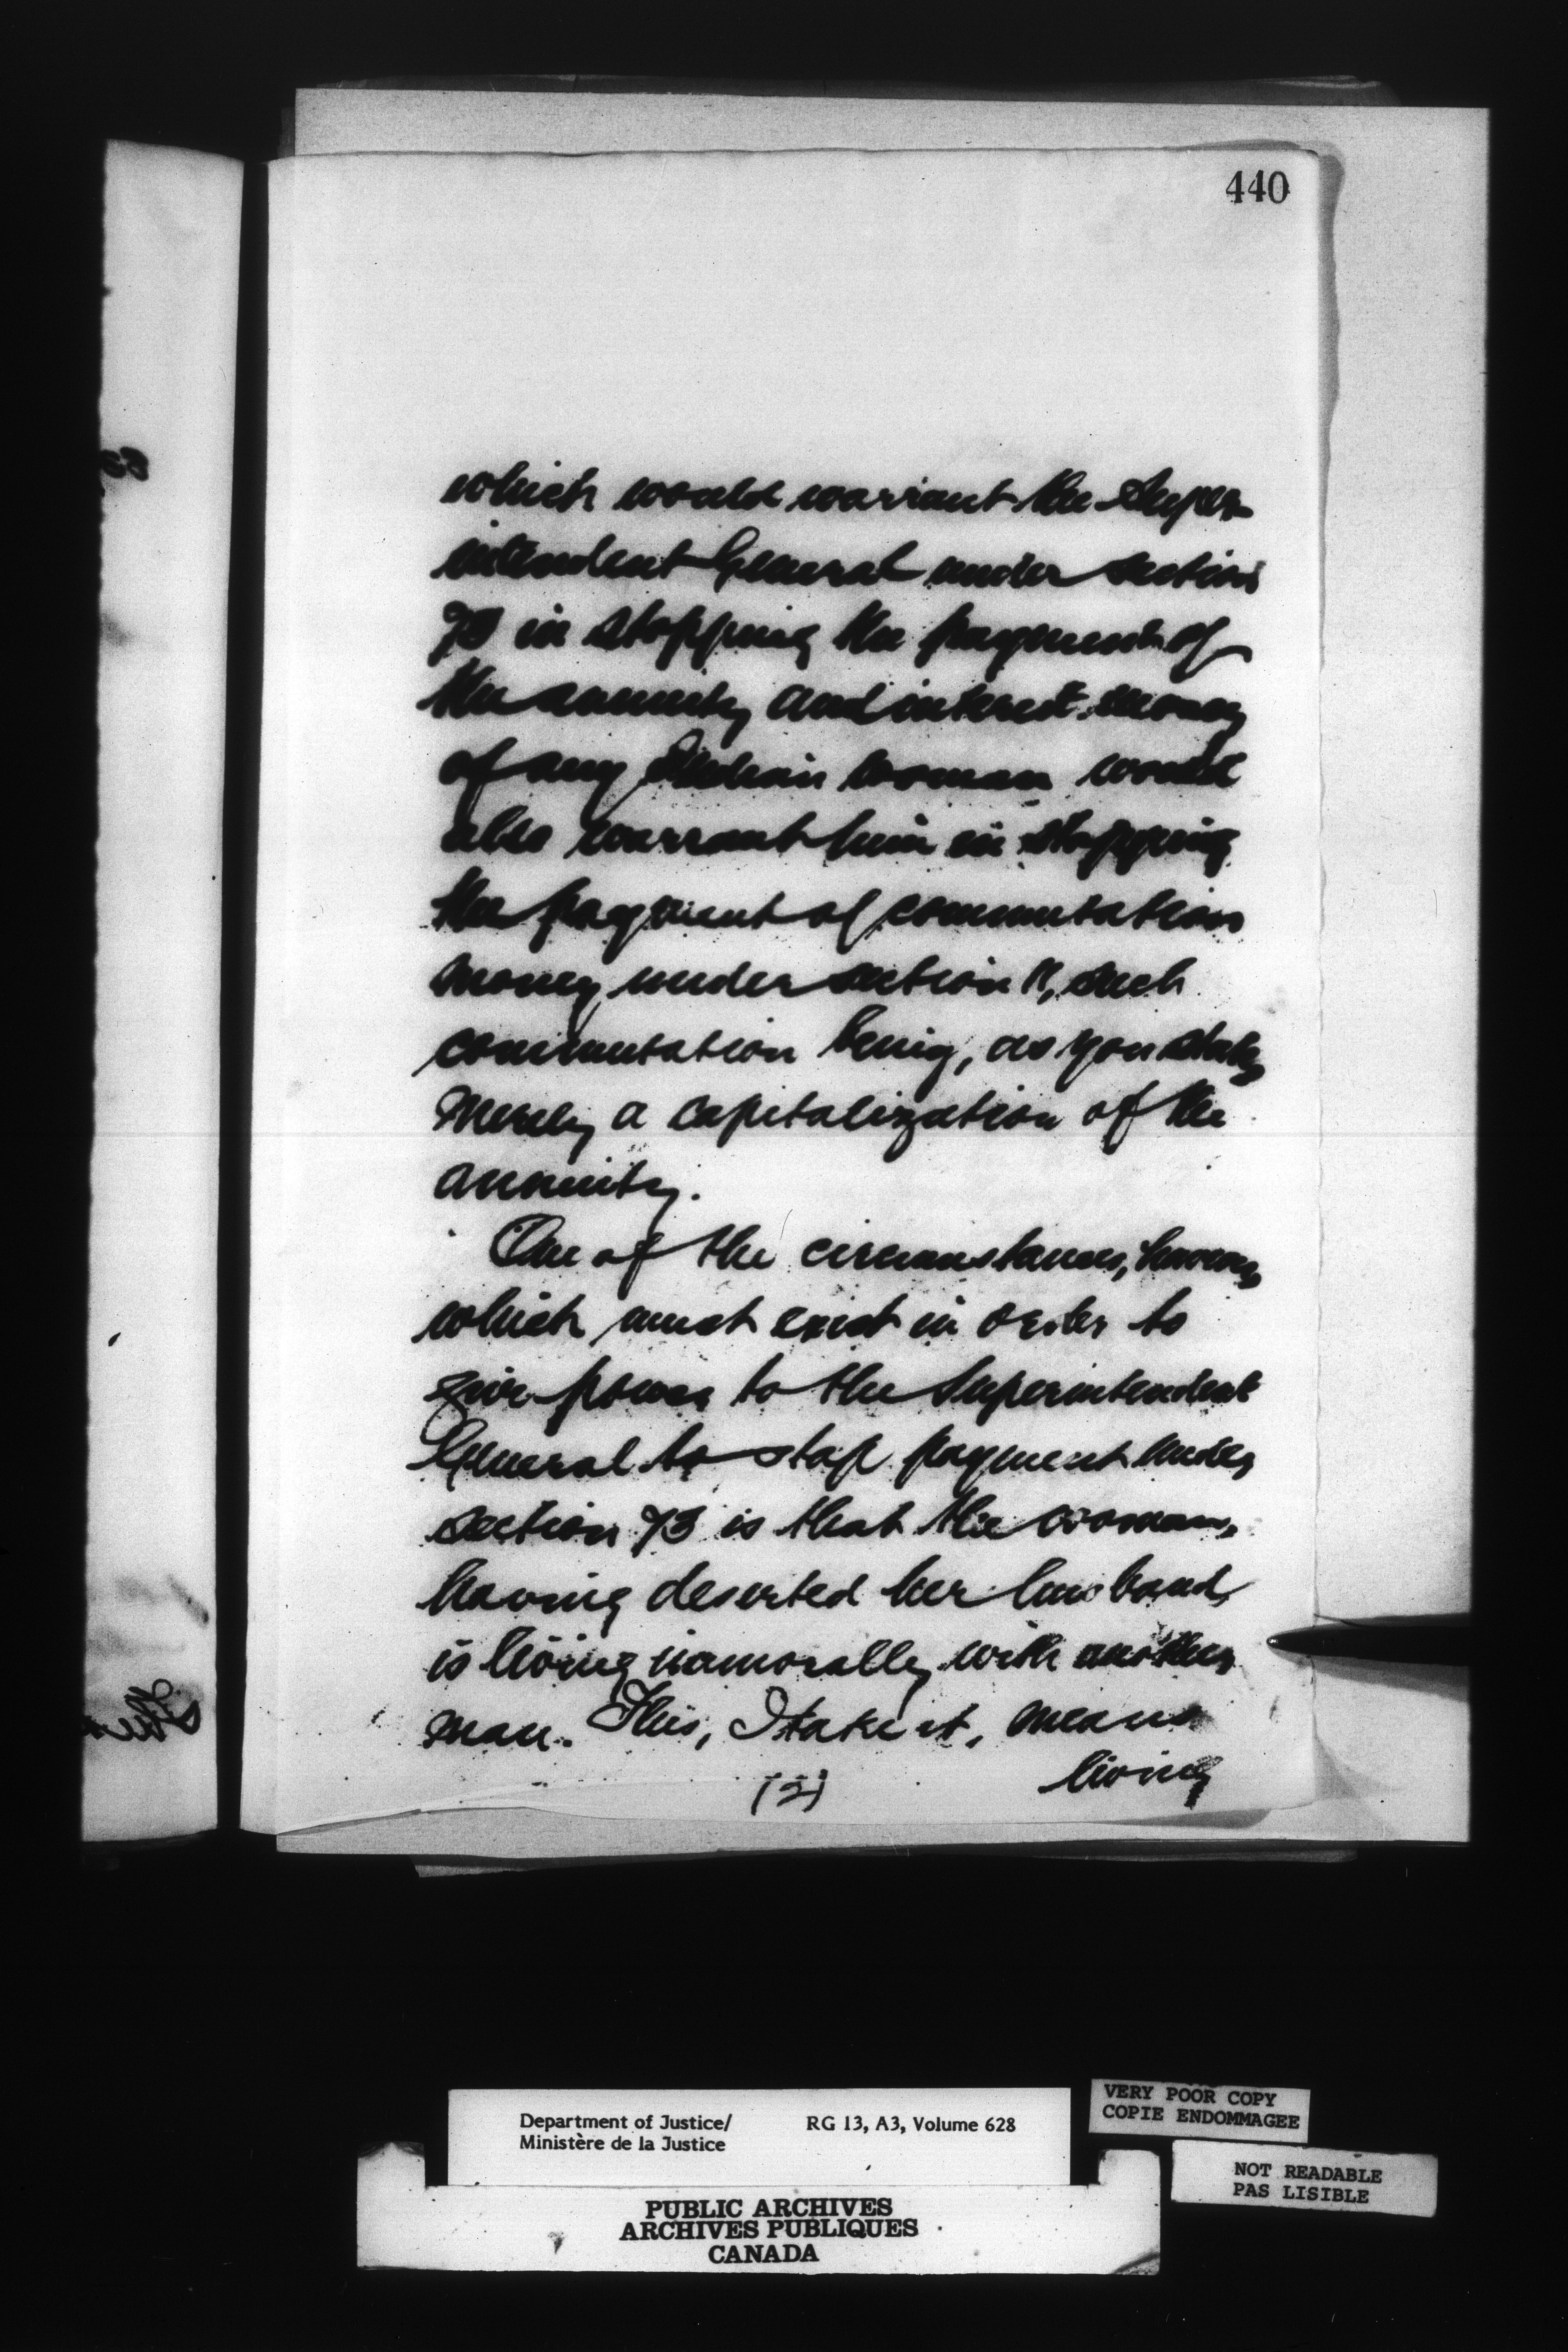 440
which would warrant the Super-
intendent General under section
73 in stopping the payment of
the annuity and interest money
of any Indian woman would
also warrant him in stopping
the payment of commutation
money under section 11, such
commutation being, as you state,
merely a capitalization of the
annuity.
One of the circumstances, however,
which must exist in order to
give power to the Superintendent
General to stop payment under
section 73 is that the woman,
having deserted her husband,
is living immorally with another
man. This, I take it, means
living
(2)
Department of Justice/ RG 13, A3, Volume 628
Ministère de la Justice
VERY POOR COPY
COPIE ENDOMMAGEE
NOT READABLE
PAS LISIBLE
PUBLIC ARCHIVES
ARCHIVES PUBLIQUES
CANADA